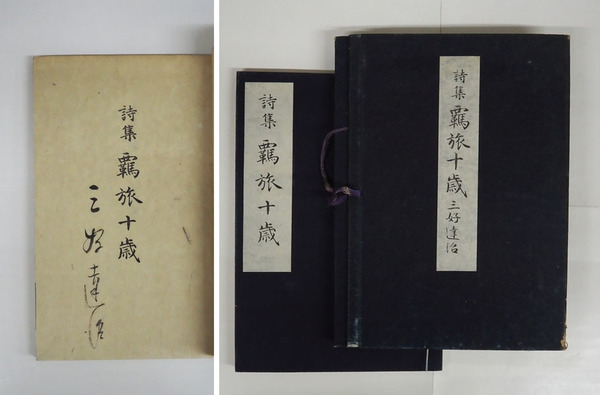 詩集 羈旅十歳
三好達治
詩集 羈旅十歳
詩集 羈旅十歳 三好達治